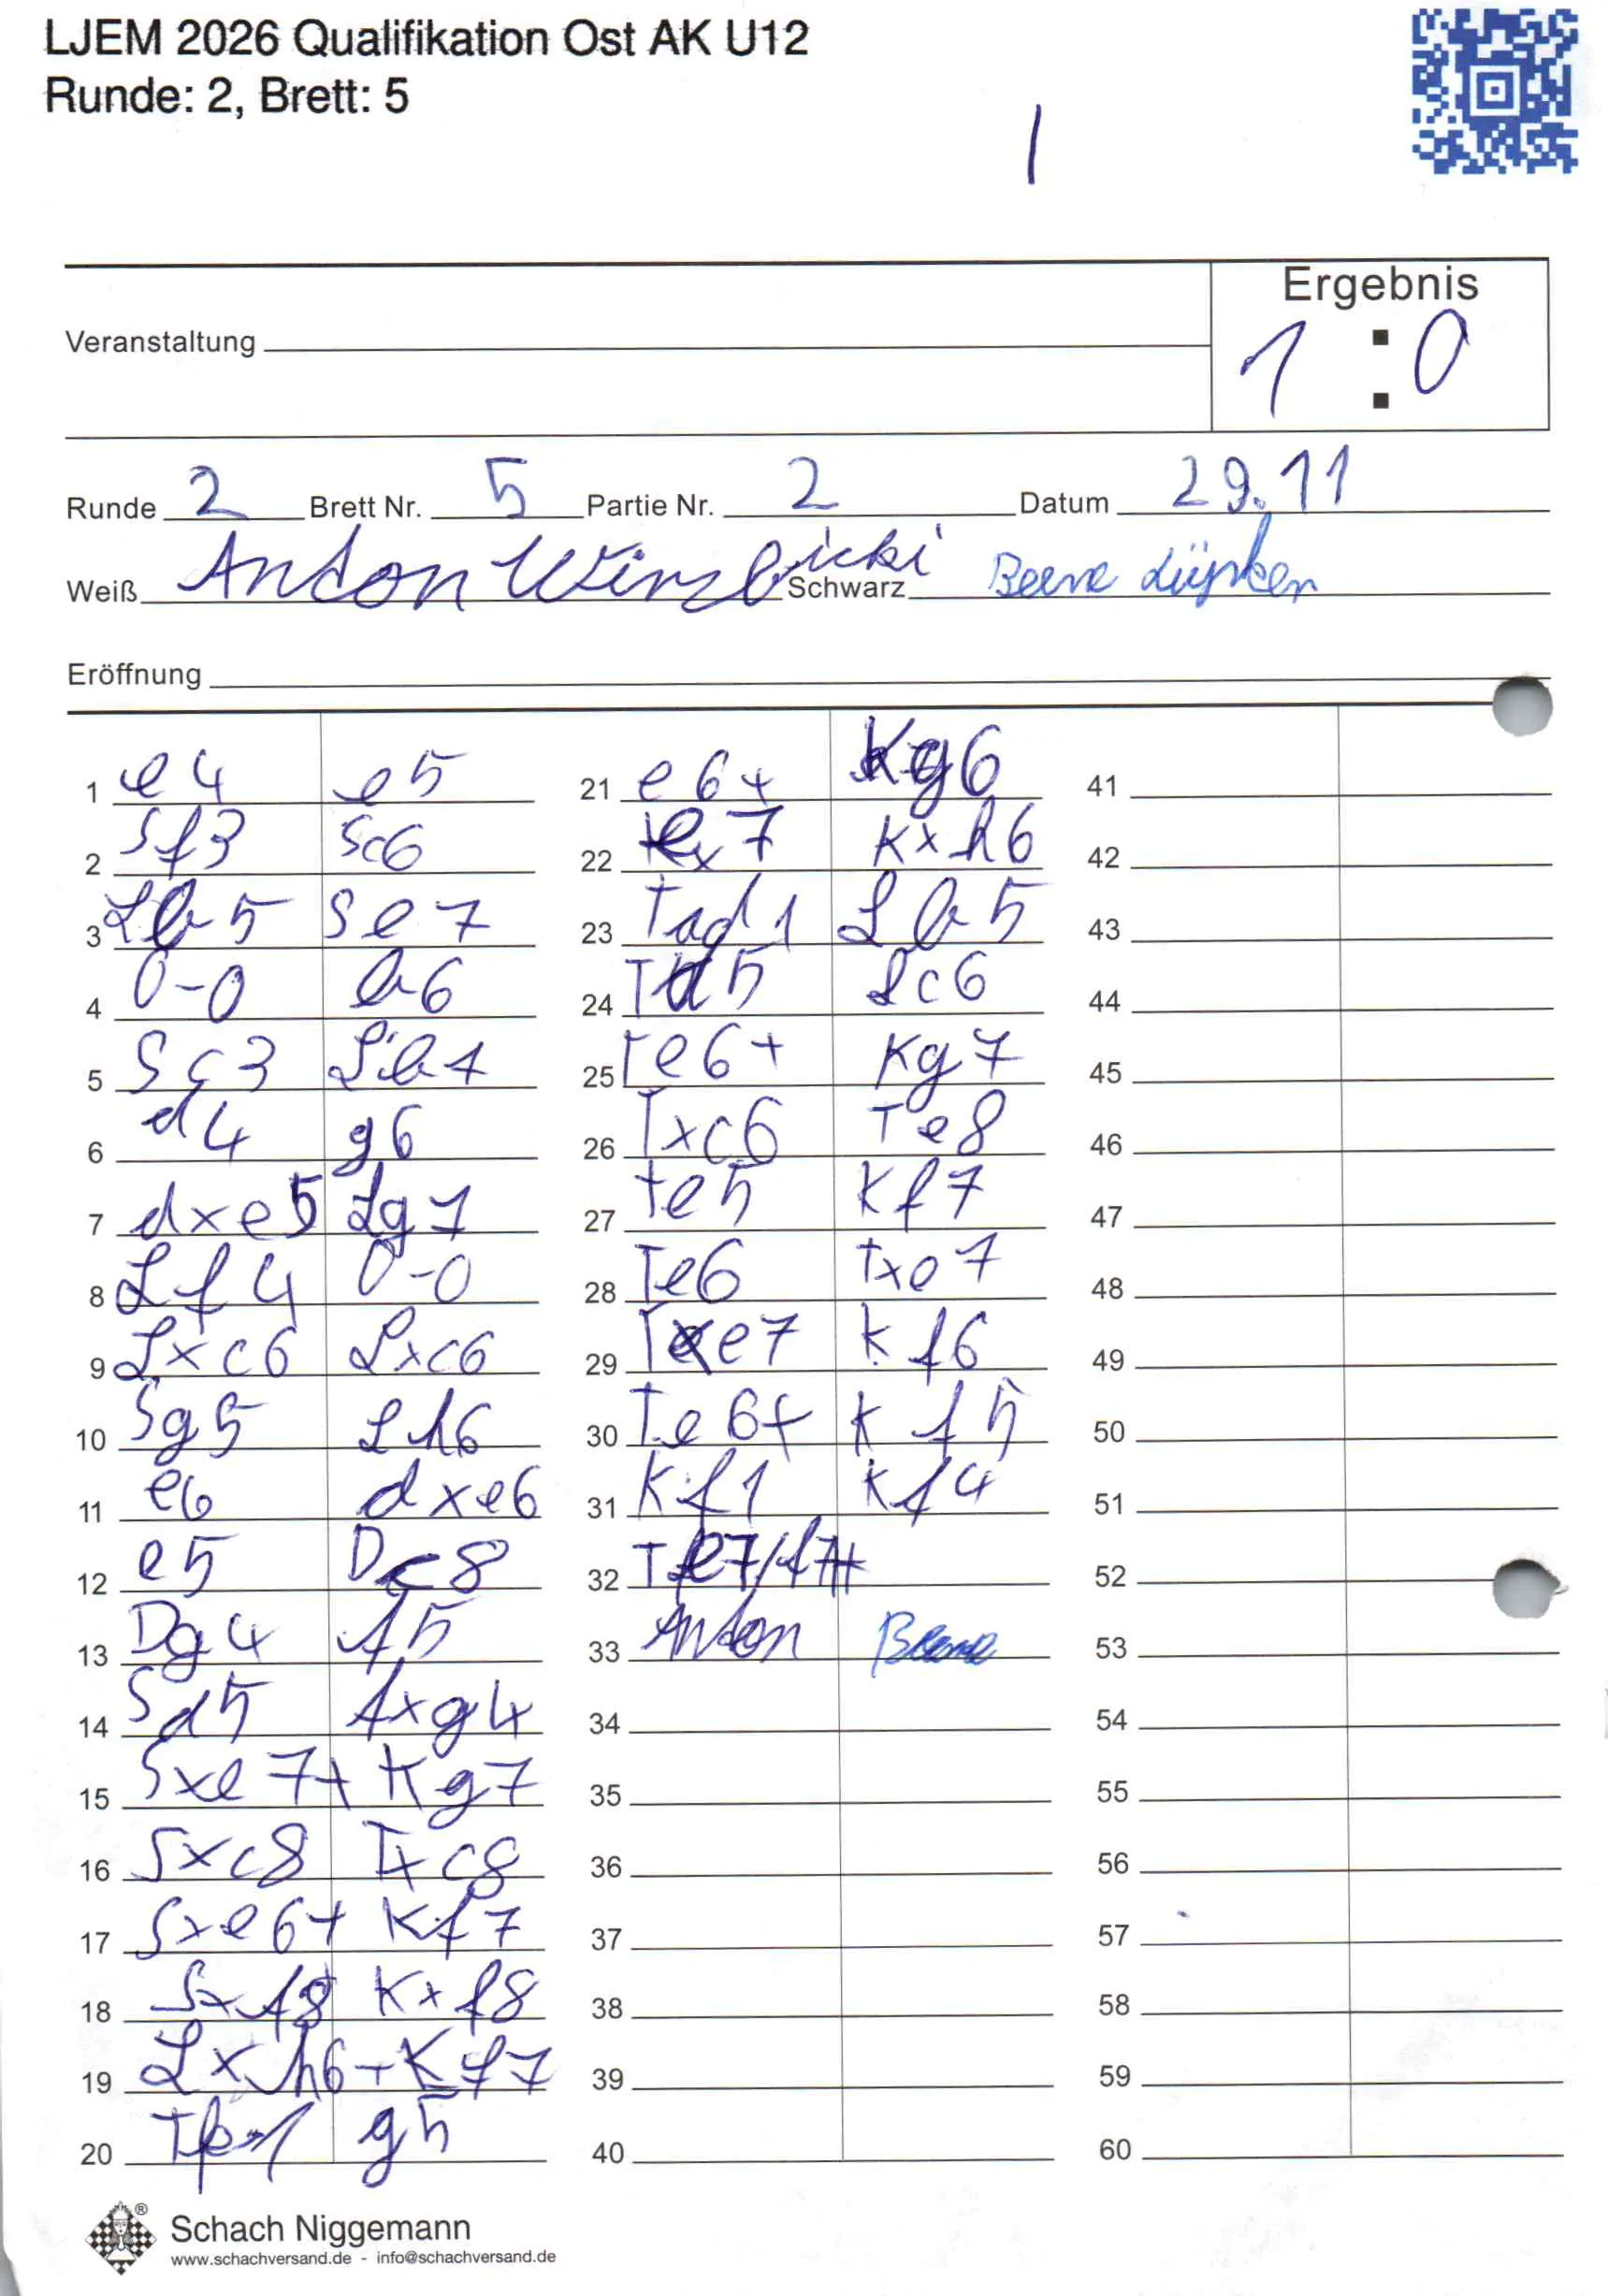 LJEM 2026 Qualifikation Ost AK U12
Runde: 2, Brett: 5
1
Ergebnis
Veranstaltung
1 : 0
Runde 2 Brett Nr. 5 Partie Nr. 2 Datum 29.11
Weiß Anton Schwarz
Eröffnung
1 e4 e5
2 Sf3 Sc6
3 Lb5 Se7
4 0-0 b6
5 Sc3 Lb7
6 d4 g6
7 dxe5 Lg7
8 Lf4 0-0
9 Lxc6 Lxc6
10 Sg5 Lh6
11 e6 dxe6
12 e5 Dc8
13 Dg4 f5
14 Sd5 fxg4
15 Sxe7+ Kg7
16 Sxc8 Txc8
17 Sxe6+ Kf7
18 Sxf8 Kxf8
19 Lxh6+ Kf7
20 Tfe1 g5
21 e6+ Kg6
22 e7 Kxh6
23 Tad1 Lb5
24 Td5 Lc6
25 Te6+ Kg7
26 Txc6 Te8
27 Te5 Kf7
28 Te6 Txe7
29 Txe7 Kf6
30 Te6+ Kf5
31 Kf1 Kf4
32 Te7/f7+
33 Anton Beene
34
35
36
37
38
39
40
41
42
43
44
45
46
47
48
49
50
51
52
53
54
55
56
57
58
59
60
Schach Niggemann
www.schachversand.de - info@schachversand.de